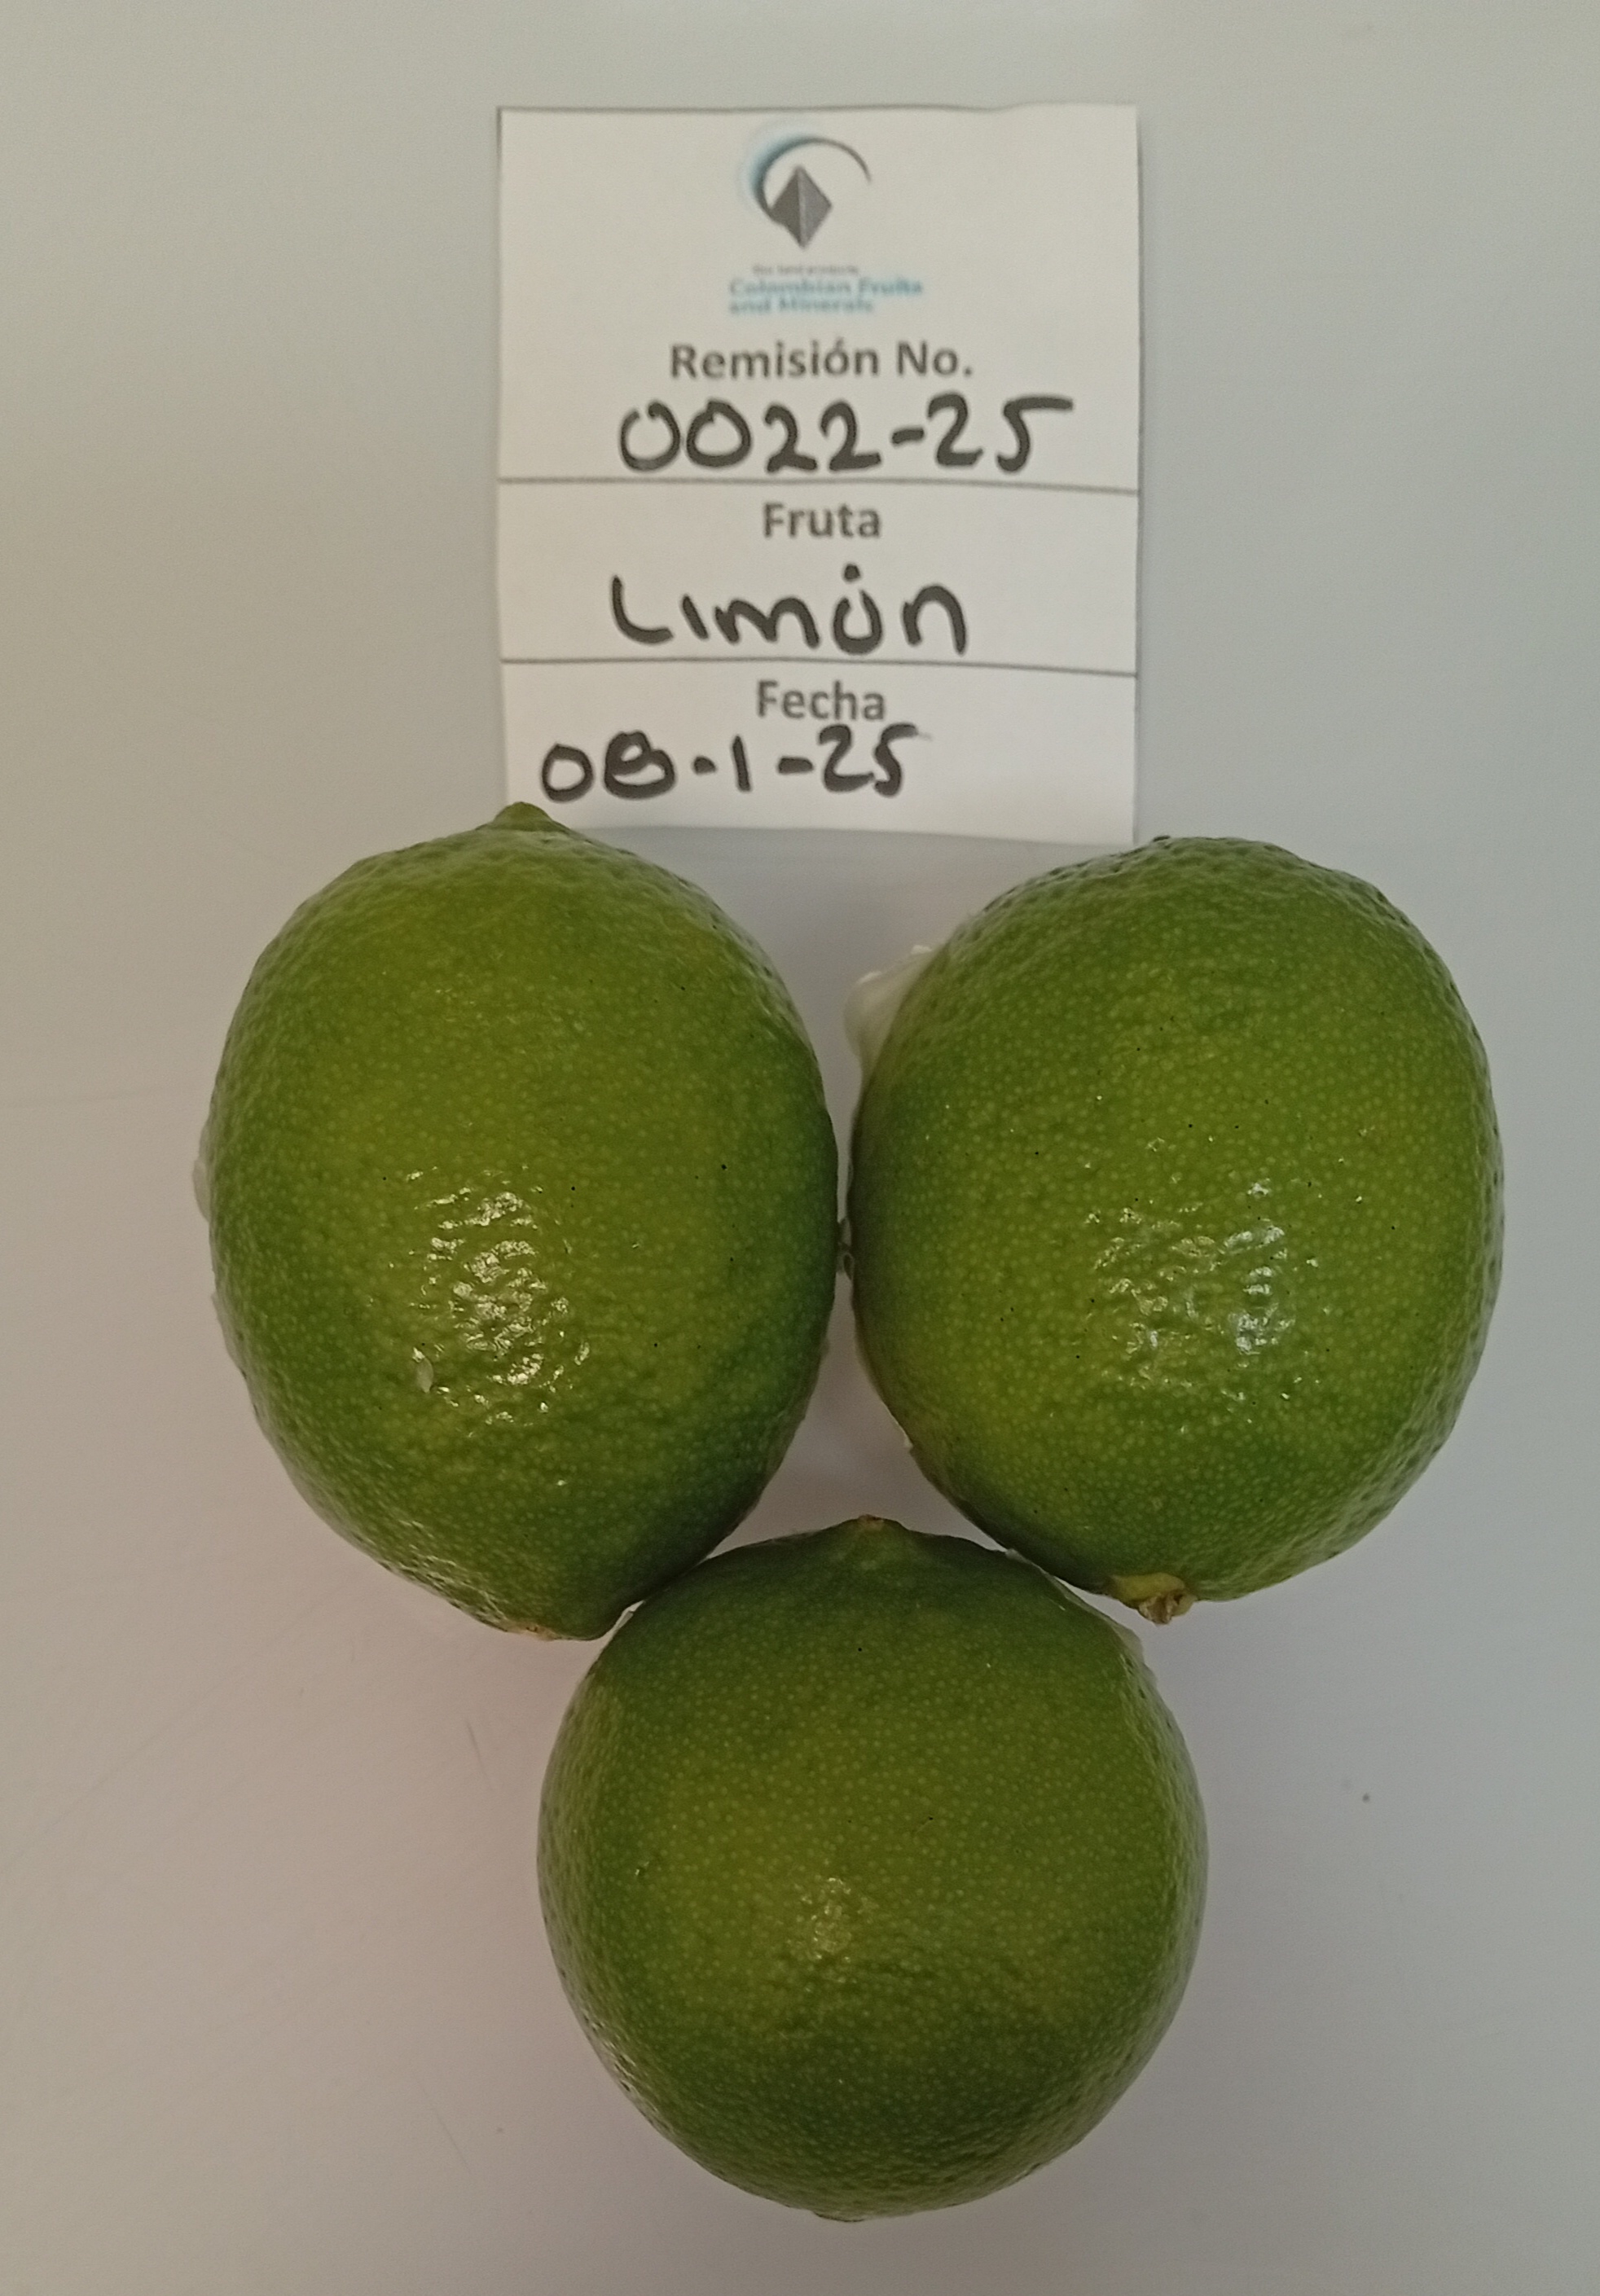 Colombian Fruits
and Minerals
Remisión No.
0022-25
Fruta
Limón
Fecha
08-1-25